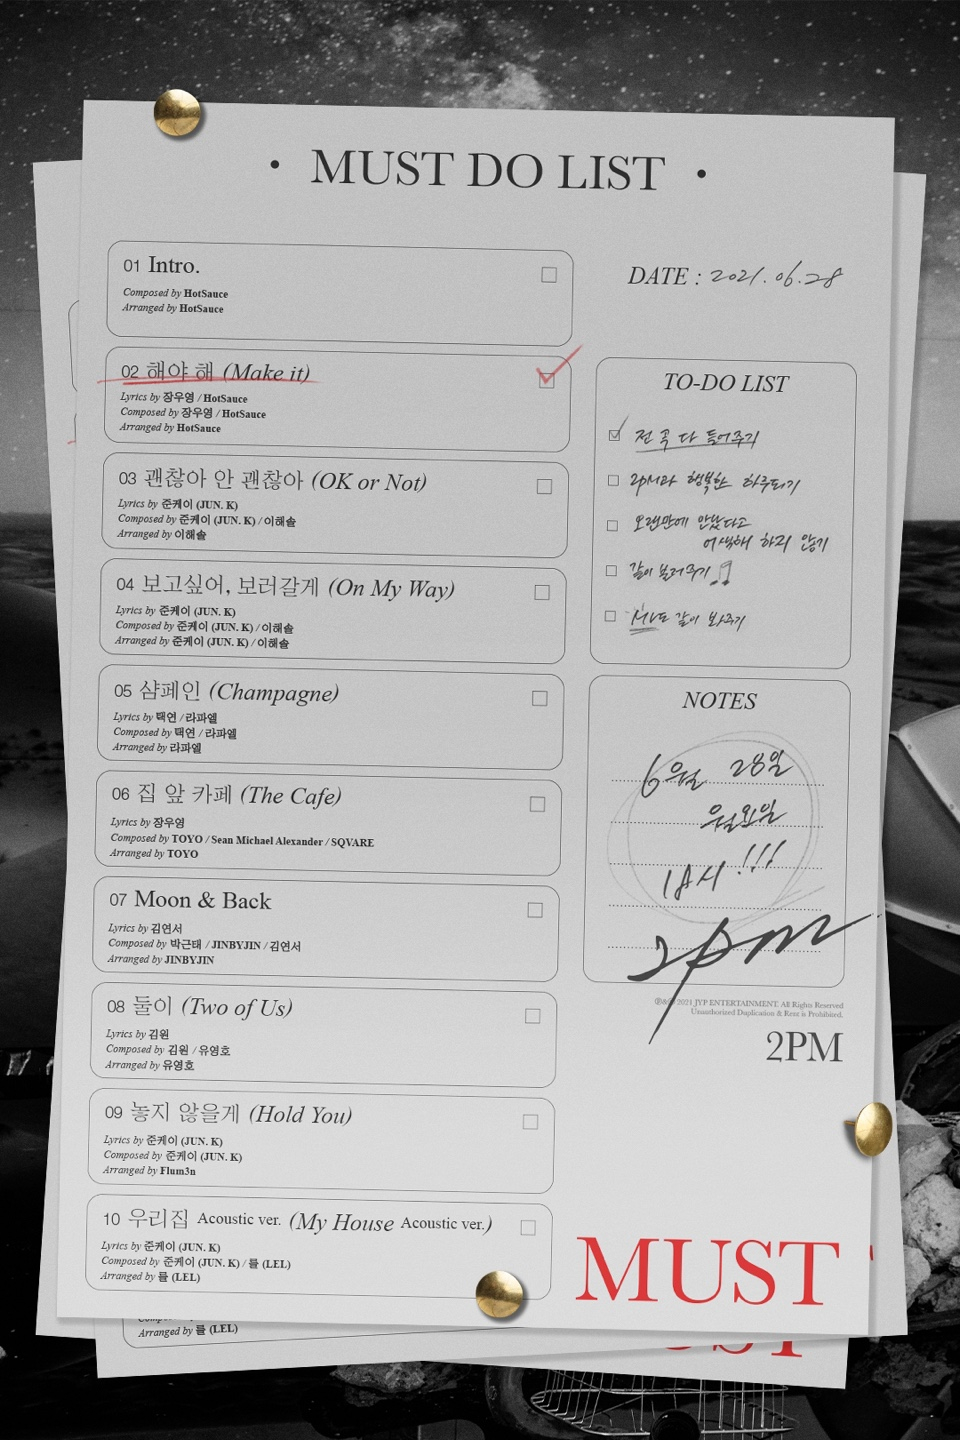 · MUST DO LIST ·
01 Intro.
Composed by HotSauce
Arranged by HotSauce
02 해야 해 (Make it)
Lyrics by 장우영 / HotSauce
Composed by 장우영 / HotSauce
Arranged by HotSauce
03 괜찮아 안 괜찮아 (OK or Not)
Lyrics by 준케이 (JUN. K)
Composed by 준케이 (JUN. K) / 이해솔
Arranged by 이해솔
04 보고싶어, 보러갈게 (On My Way)
Lyrics by 준케이 (JUN. K)
Composed by 준케이 (JUN. K) / 이해솔
Arranged by 준케이 (JUN. K) / 이해솔
05 샴페인 (Champagne)
Lyrics by 택연 / 라파엘
Composed by 택연 / 라파엘
Arranged by 라파엘
06 집 앞 카페 (The Cafe)
Lyrics by 장우영
Composed by TOYO / Sean Michael Alexander / SQVARE
Arranged by TOYO
07 Moon & Back
Lyrics by 김연서
Composed by 박근태 / JINBYJIN / 김연서
Arranged by JINBYJIN
08 둘이 (Two of Us)
Lyrics by 김원
Composed by 김원 / 유영호
Arranged by 유영호
09 놓지 않을게 (Hold You)
Lyrics by 준케이 (JUN. K)
Composed by 준케이 (JUN. K)
Arranged by Flum3n
10 우리집 Acoustic ver. (My House Acoustic ver.)
Lyrics by 준케이 (JUN. K)
Composed by 준케이 (JUN. K) / 를 (LEL)
Arranged by 를 (LEL)
DATE : 2021.06.28
TO-DO LIST
전 곡 다 들어주기
2pm과 행복한 하루되기
오랜만에 만났다고
어색해 하지 않기
같이 불러주기
MV도 같이 봐주기
NOTES
6월 28일
월요일
6시 !!!
2pm
℗&© 2021 JYP ENTERTAINMENT. All Rights Reserved
Unauthorized Duplication & Rent is Prohibited.
2PM
MUST
Arranged by 를 (LEL)